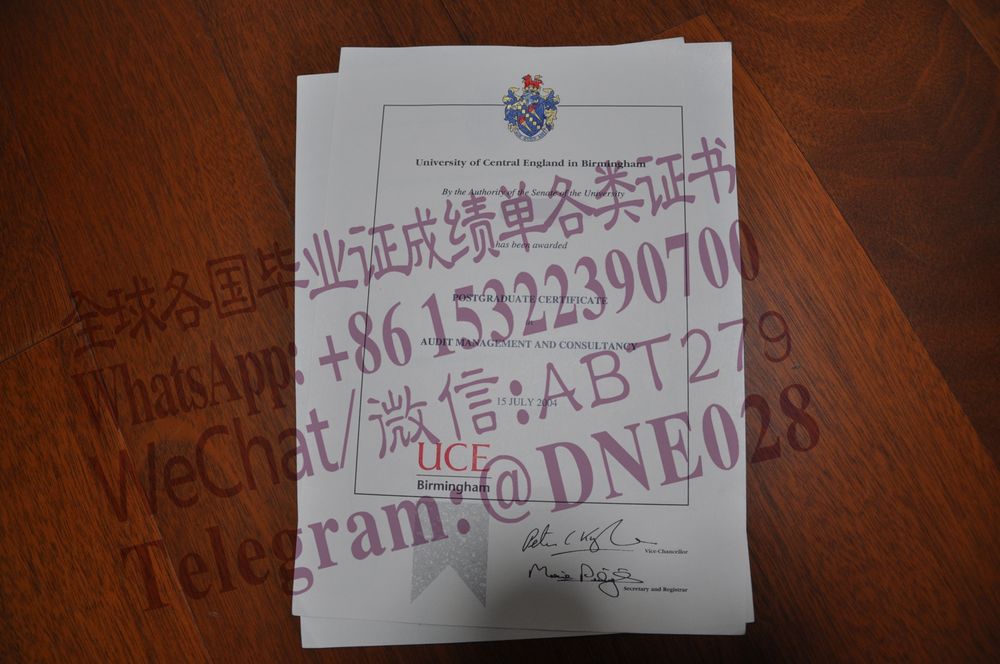 University of Central England in Birmingham
By the Authority of the Senate of the University
has been awarded
POSTGRADUATE CERTIFICATE
in
AUDIT MANAGEMENT AND CONSULTANCY
15 JULY 2004
UCE
Birmingham
Vice-Chancellor
Secretary and Registrar
全球各国毕业证成绩单各类证书
WhatsApp: +86 15322390700
WeChat/微信:ABT279
Telegram:@DNE028